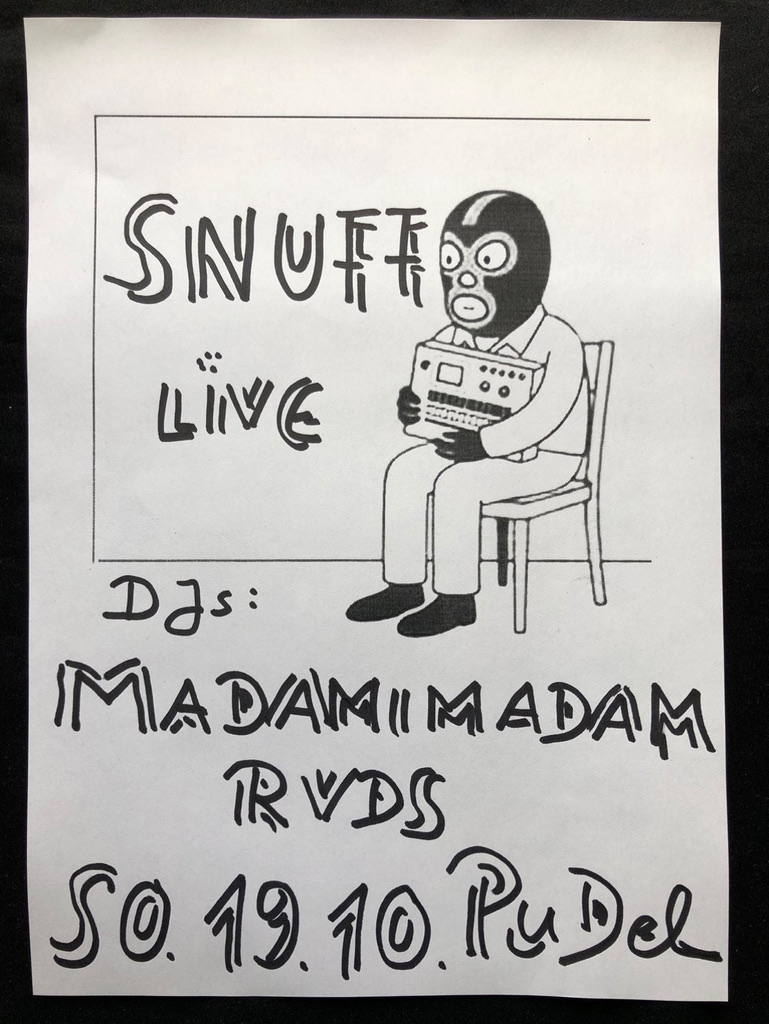 SNUFF
LÏVE
DJs:
MADAMIMADAM
RVDS
SO. 19.10. PuDel